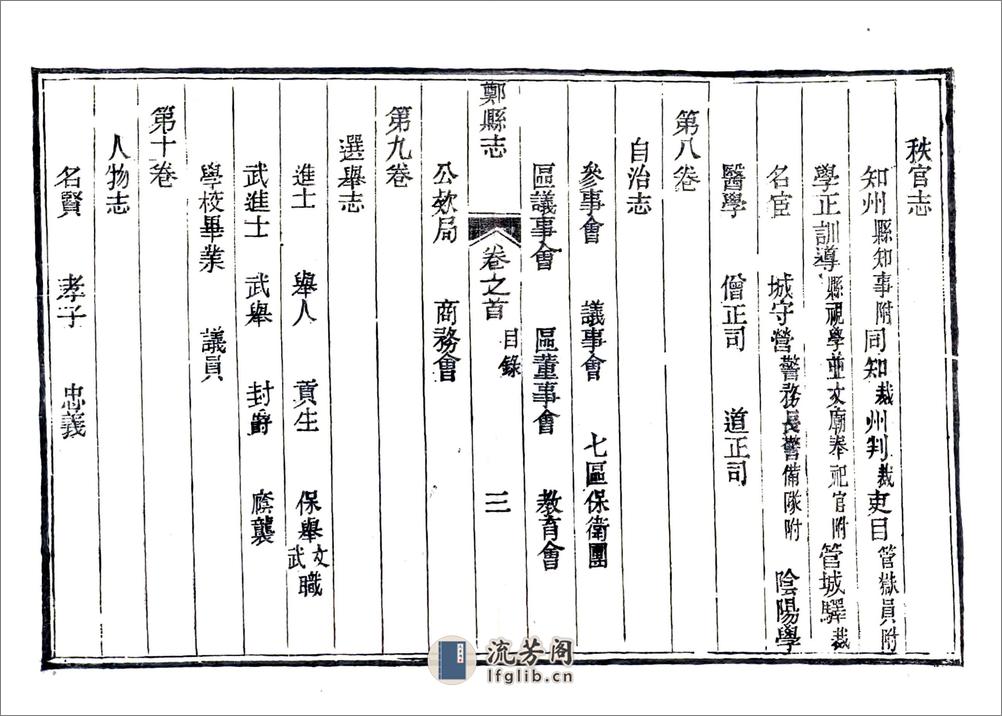 秩官志
知州縣知事附 同知裁 州判裁 吏目管獄員附
學正訓導縣視學並文廟奉祀官附 管城驛裁
名宦 城守營警務長警備隊附 陰陽學
醫學 僧正司 道正司
第八卷
自治志
參事會 議事會 七區保衛團
區議事會 區董事會 教育會
鄭縣志 卷之首 目錄 三
公欵局 商務會
第九卷
選舉志
進士 舉人 貢生 保舉文武職
武進士 武舉 封爵 廕襲
學校畢業 議員
第十卷
人物志
名賢 孝子 忠義
流芳阁
lfglib.cn